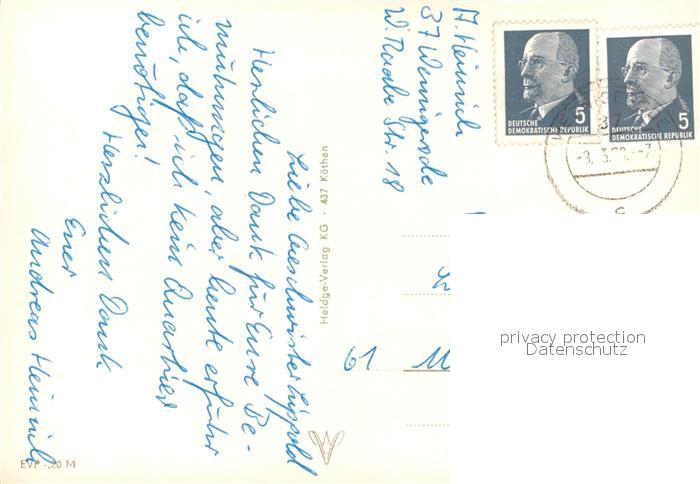 A. Heinrich
37 Wernigerode
W. Raabe Str. 18
5
DEUTSCHE
DEMOKRATISCHE REPUBLIK
5
DEUTSCHE
DEMOKRATISCHE REPUBLIK
Liebe Geschwister Lippold
Herzlichen Dank für Eure Be-
mühungen, aber heute erfuhr
ich, daß ich kein Quartier
benötige!
Herzlichen Dank
Euer
Andreas Heinrich
Heldge-Verlag KG · 437 Köthen
61
privacy protection
Datenschutz
EVP -,20 M